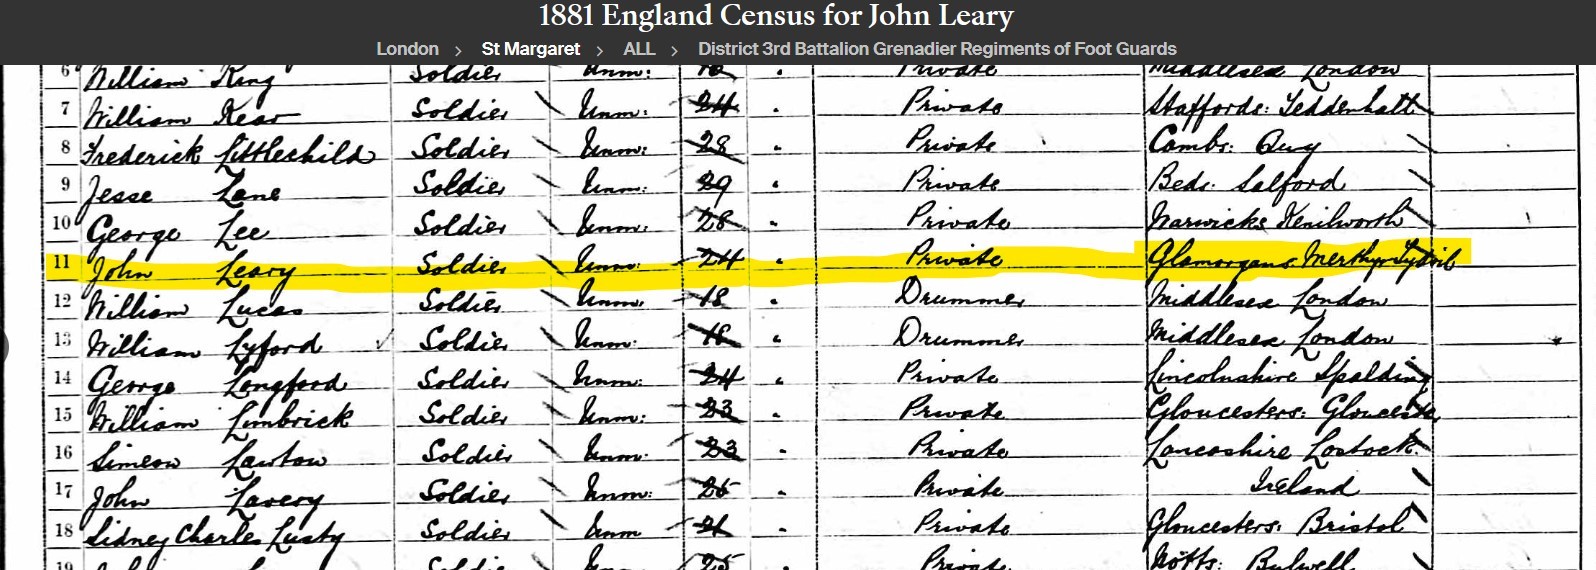 1881 England Census for John Leary
London > St Margaret > ALL > District 3rd Battalion Grenadier Regiments of Foot Guards
6 William King Soldier Unm: Private Middlesex London
7 William Kear Soldier Unm: 24 " Private Staffords: Teddenhall
8 Frederick Littlechild Soldier Unm: 28 " Private Cambs: Quy
9 Jesse Lane Soldier Unm: 29 " Private Beds: Salford
10 George Lee Soldier Unm: 28 " Private Warwicks Kenilworth
11 John Leary Soldier Unm: 24 " Private Glamorgans Merthyr Tydvil
12 William Lucas Soldier Unm: 18 " Drummer Middlesex London
13 William Lyford Soldier Unm: 18 " Drummer Middlesex London
14 George Longford Soldier Unm: 24 " Private Lincolnshire Spalding
15 William Limbrick Soldier Unm: 23 " Private Gloucesters: Gloucester
16 Simeon Lawton Soldier Unm: 23 " Private Lancashire Lostock
17 John Lavery Soldier Unm: 25 " Private Ireland
18 Sidney Charles Lusty Soldier Unm 21 " Private Gloucesters: Bristol
19 25 Private Notts: Bulwell